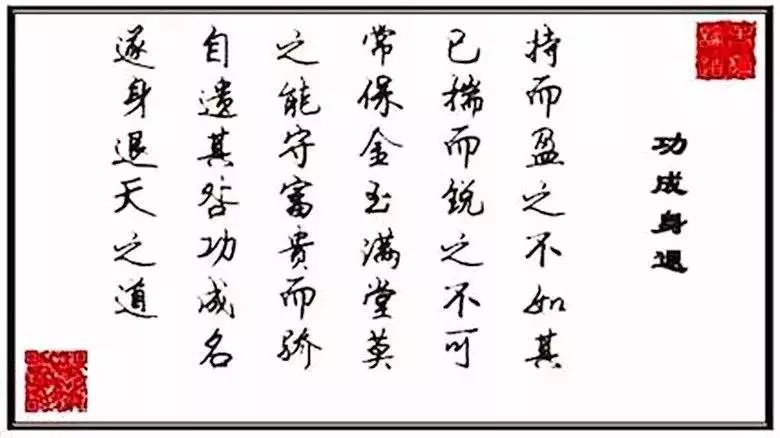 功成身退
持而盈之不如其
已揣而锐之不可
常保金玉满堂莫
之能守富贵而骄
自遗其咎功成名
遂身退天之道